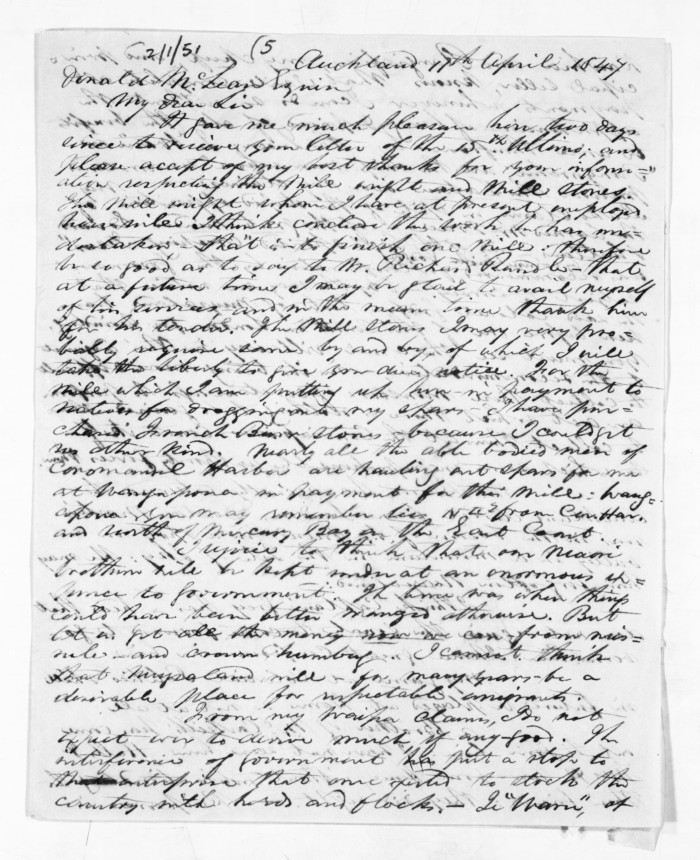 2/1/51 (5
Auckland 17th April 1847
Donald McLean Esquire
My dear Sir
It gave me much pleasure here two days
since to recieve your letter of the 15th Ultimo; and
please accept of my best thanks for your inform=
ation respecting the Mill wright and Mill stones.
The Mill wright whom I have at present employed
here will I think conclude the work he has un
dertaken - that is to finish one Mill. Therefore
be so good as to say to Mr. Richd Randle - that
at a future time I may be glad to avail myself
of his services and in the mean time thank him
for his tender. The Mill stones I may very pro=
bably require some by and by, of which I will
take the liberty to give you due notice. For the
Mill which I am putting up here in payment to
natives for dragging out my spars - I have pur=
chased French Burr stones - because I could get
no other kind. Nearly all the able bodied men of
Coromandel Harbor are hauling out spars for me
at Wangapoua in payment for this Mill. Wang=
apoua you may remember lies N.E. from Cor. Har.
and north of Mercury Bay on the East Coast.
I rejoice to think that our Maori
brethren will be kept under at an enormous ex=
pence to government. The time was when things
could have been better manged otherwise. But
let us get all the money now we can from mis=
rule and crown humbug. I cannot think
that New Zealand will - for many years - be a
desirable place for respectable emigrants.
From my Waipa claims, I do not
expect ever to derive much if any good. The
interference of government has put a stop to
the enterprise that once existed to stock the
country with herds and flocks. - Te "Waru", at